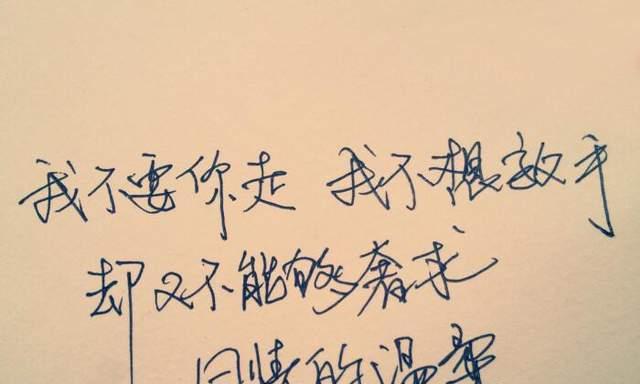 我不要你走 我不想放手
却又不能够奢求
同情的温柔